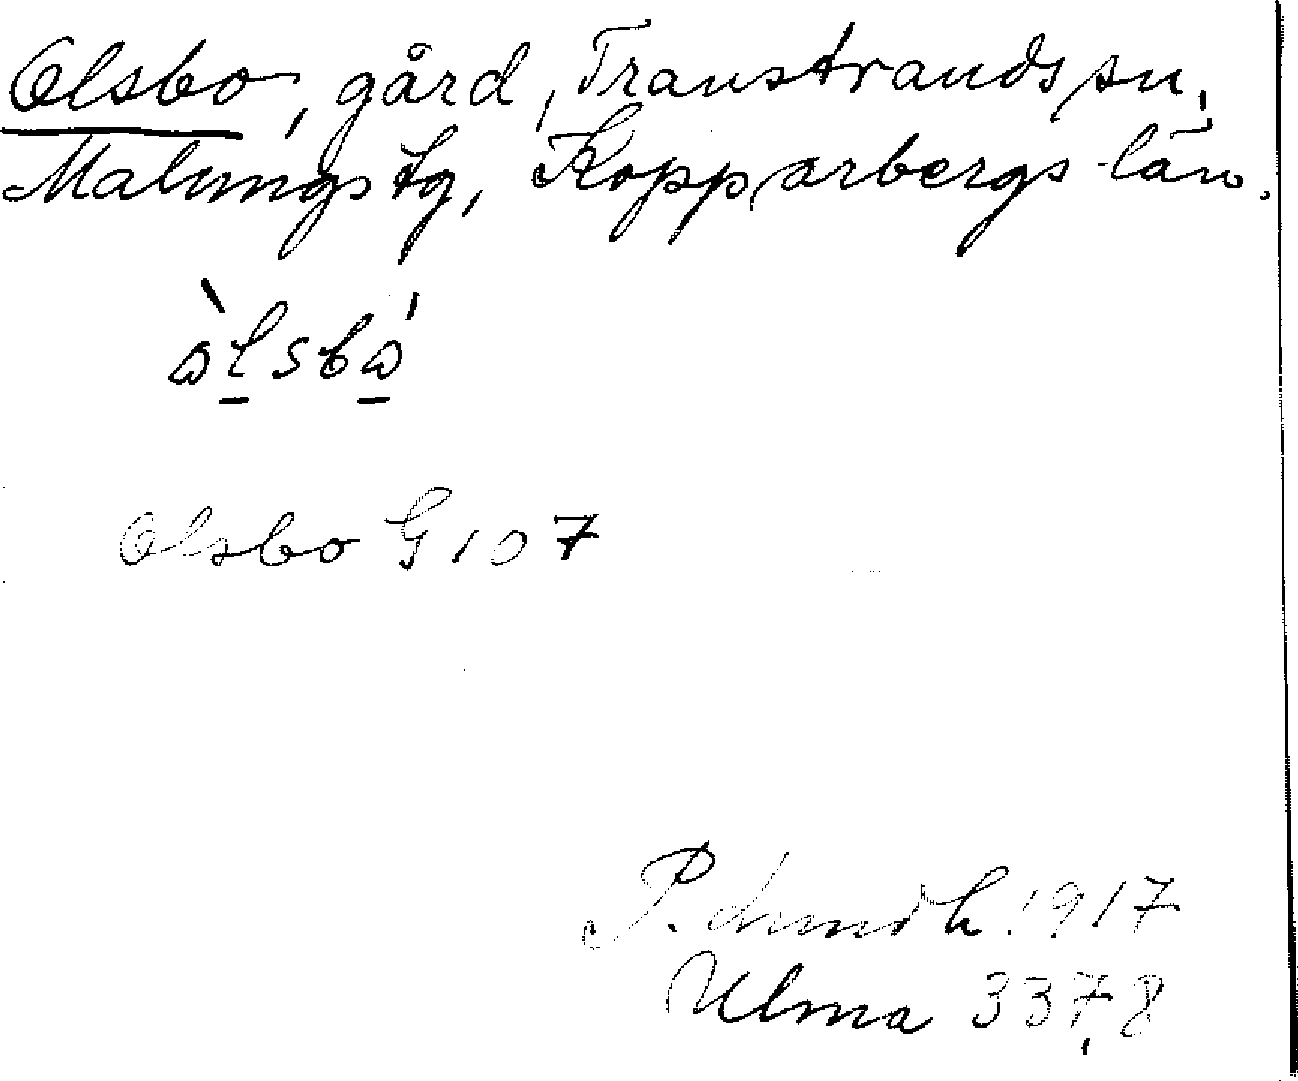 Olsbo, gård, Transtrands sn,
Malungs tg, Kopparbergs län.
Olsbo G 107
P. Lindh. 1917
Ulma 337,8